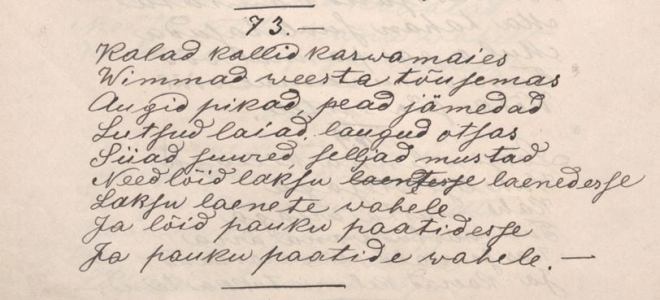 73.—
Kalad kallid karwamaies
Wimmad weesta tõusemas
Augid pikad, pead jämedad
Lutsud laiad, laugud otsas
Siiad suured, seljad mustad
Need lõid laksu laentesse laenedesse
Laksu laenete vahele
Ja lõid pauku paatidesse
Ja pauku paatide wahele.—